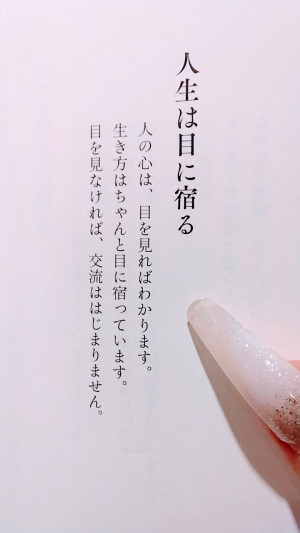 人生は目に宿る
人の心は、目を見ればわかります。
生き方はちゃんと目に宿っています。
目を見なければ、交流ははじまりません。